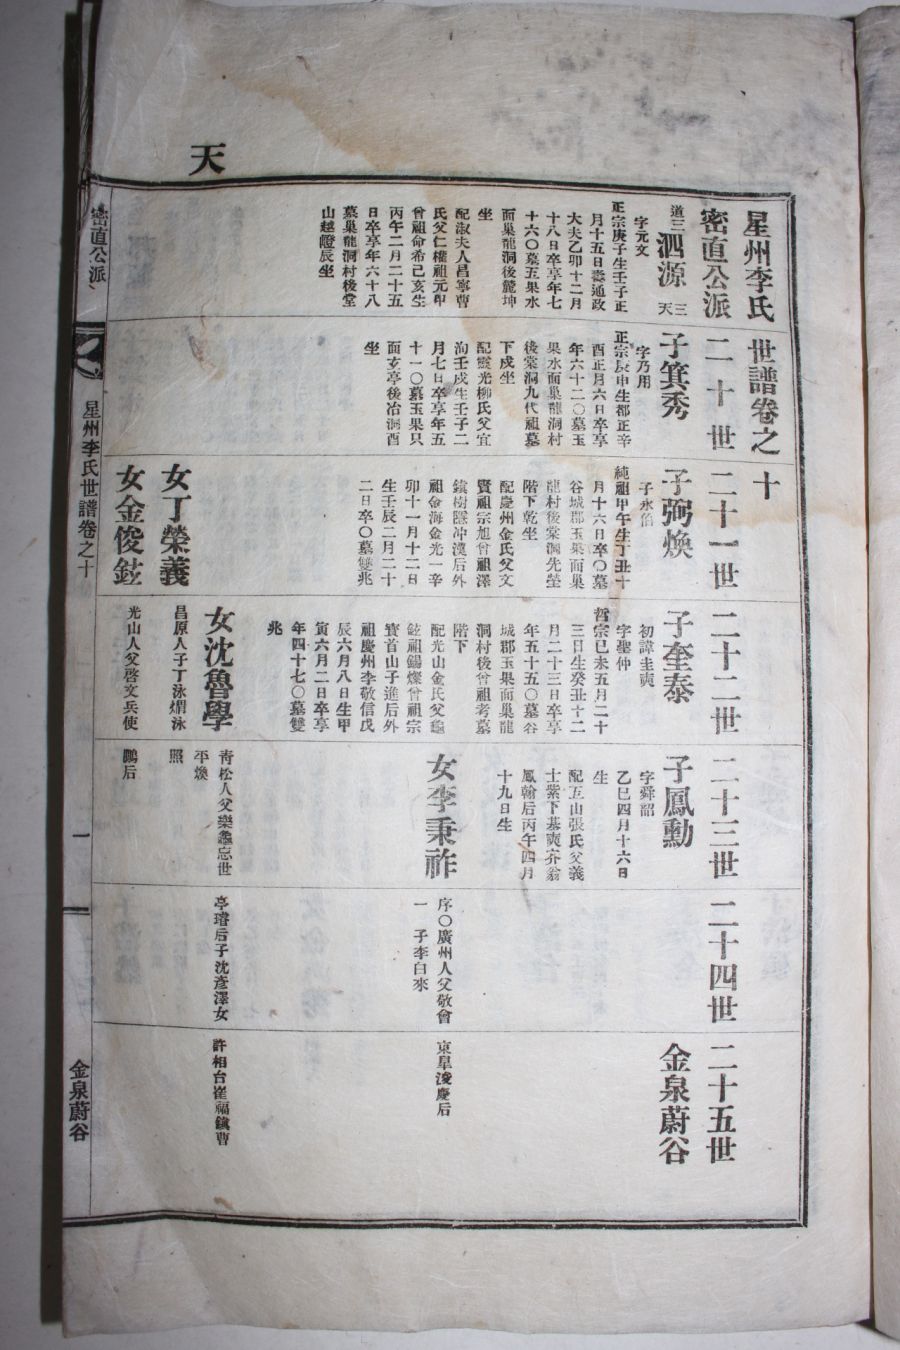 天
星州李氏世譜卷之十
密直公派
二十世
二十一世
二十二世
二十三世
二十四世
二十五世
道三
泗源
三
天
字元文
正宗庚子生壬子正
月十五日壽通政
大夫乙卯十二月
十八日卒享年七
十六〇墓五果水
面巢龍洞後麓坤
坐
配淑夫人昌寧曹
氏父仁權祖元甲
曾祖命希己亥生
丙午二月二十五
日卒享年六十八
墓巢龍洞村後堂
山越嶝辰坐
子箕秀
字乃用
正宗辰申生都正辛
酉正月六日卒享
年六十二〇墓玉
果水面巢龍洞村
後棠洞九代祖墓
下戌坐
配靈光柳氏父宜
洵壬戌生壬子二
月七日卒享年五
十一〇墓玉果只
面玄亭後冶洞酉
坐
子弼煥
子永伯
純祖甲午生丁丑十
月十六日卒〇墓
谷城郡玉果面巢
龍村後棠洞先塋
階下乾坐
配慶州金氏父文
賢祖宗旭曾祖澤
鎮樹隱冲漢后外
祖金海金光一辛
卯十一月十二日
生壬辰二月二十
二日卒〇墓雙兆
女丁榮義
女金俊鉉
子奎泰
初諱圭奭
字聖仲
哲宗己未五月二十
三日生癸丑十二
月二十三日卒享
年五十五〇墓谷
城郡玉果面巢龍
洞村後曾祖考墓
階下
配光山金氏父龜
鉉祖錫燦曾祖宗
寶首山子進后外
祖慶州李敬信戊
辰六月八日生甲
寅六月二日卒享
年四十七〇墓雙
兆
女沈魯學
昌原人子丁泳㷩泳
光山人父啓文兵使
子鳳勳
字舜韶
乙巳四月十六日
生
配互山張氏父義
士紫下基奭夰翁
鳳翰后丙午四月
十九日生
女李秉祚
靑松人父樂龜忘世
平煥
照
鵬后
序〇廣州人父敬會
一 子李白來
亭璿后子沈彥澤女
金泉蔚谷
京皐浚慶后
許相台崔福鎮曹
密直公派
星州李氏世譜卷之十
一
金泉蔚谷